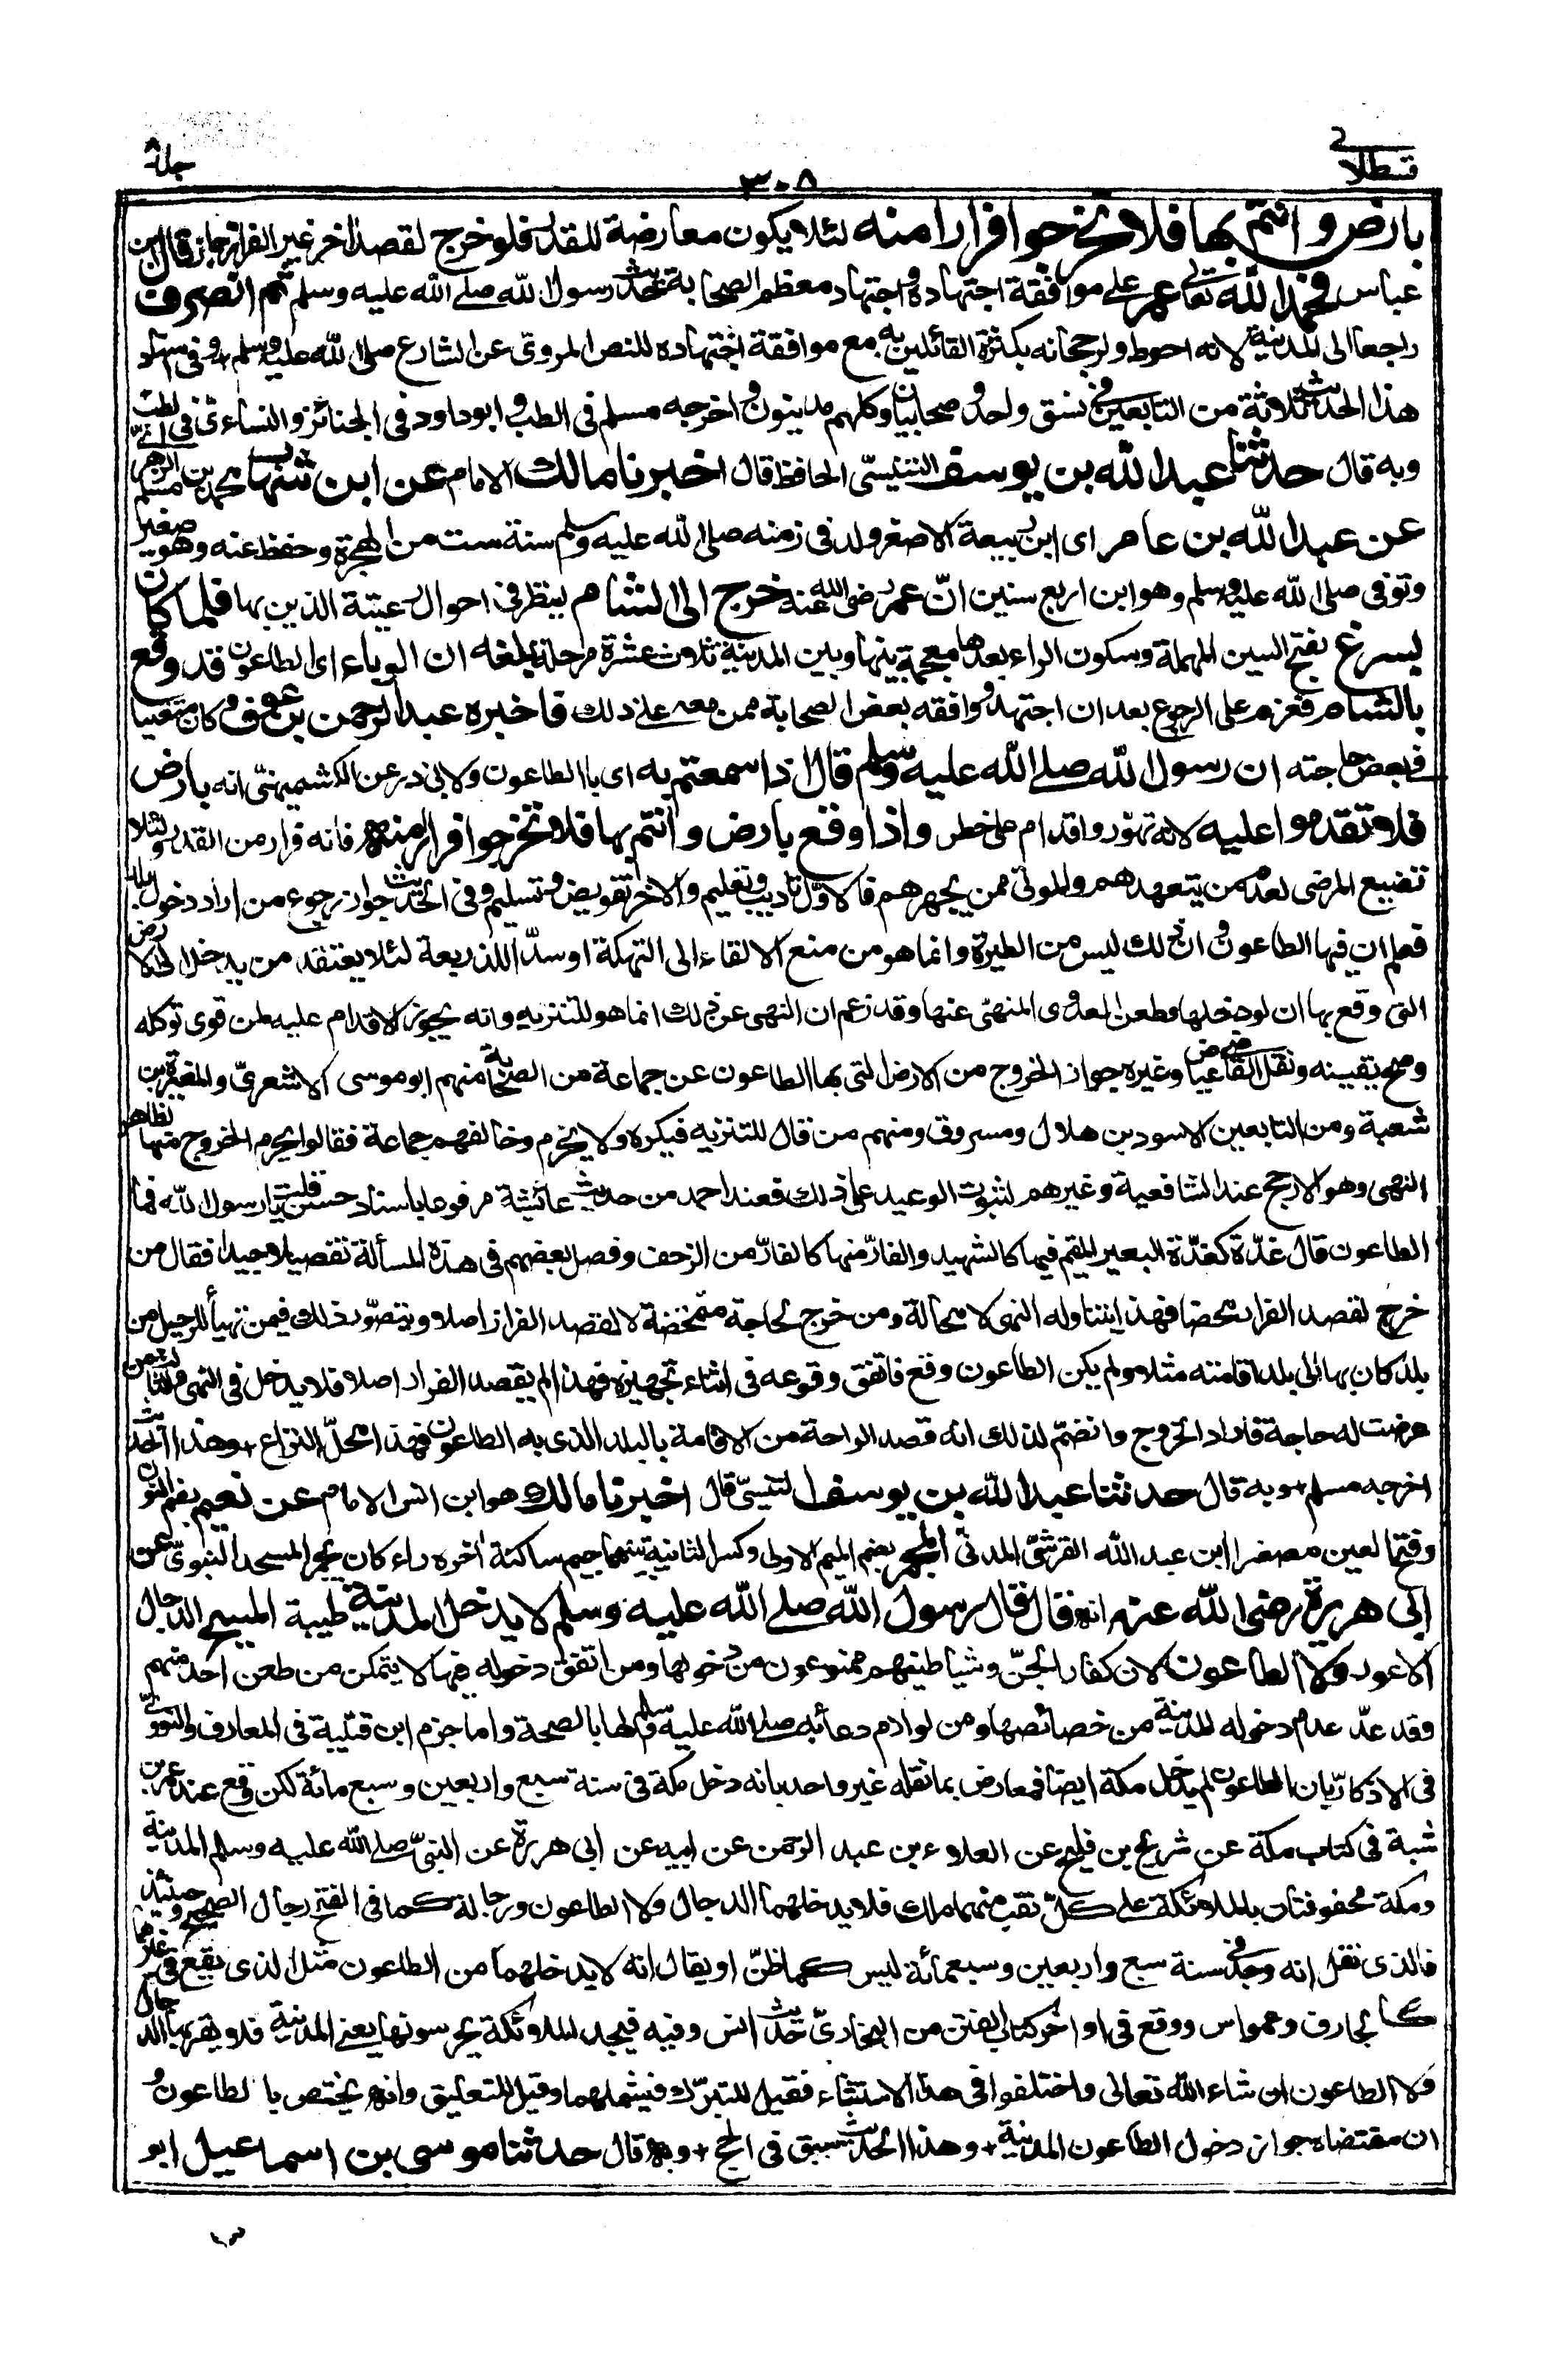 قسطلا
۳۰۸
جلد۸
بارض وانتم بها فلا تخرجوا فرارا منه لئلا يكون معارضة للقدر فلو خرج لقصد اخر غير الفرار جاز قال ابن
عباس فحمد الله تعالى عمر على موافقة اجتهاده واجتهاد معظم الصحابة حديث رسول الله صلى الله عليه وسلم ثم انصرف
راجعا الى المدينة لانه احوط ولرجحانه بكثرة القائلين به مع موافقة اجتهاده للنص المروى عن الشارع صلى الله عليه وسلم وفى اسناد
هذا الحديث ثلاثة من التابعين فى نسق واحد وصحابيان وكلهم مدينون واخرجه مسلم فى الطب وابو داود فى الجنائز والنساءى فى الطب
وبه قال حدثنا عبد الله بن يوسف التنيسى الحافظ قال اخبرنا مالك الامام عن ابن شهاب محمد بن مسلم الزهرى
عن عبد الله بن عامر اى ابن ربيعة الاصغر ولد فى زمنه صلى الله عليه وسلم سنة ست من الهجرة وحفظ عنه وهو صغير
وتوفى صلى الله عليه وسلم وهو ابن اربع سنين انّ عمر رضى الله عنه خرج الى الشام لينظر فى احوال رعيتة الذين بها فلما كان
بسرغ بفتح السين المهملة وسكون الراء بعدها معجمة بينها وبين المدينة ثلاث عشرة مرحلة بلغه ان الوباء اى الطاعون قد وقع
بالشام فعزم على الرجوع بعد ان اجتهد ووافقه بعض الصحابة ممن معه على ذلك فاخبره عبد الرحمن بن عوف وكان متغيبا
فى بعض حاجته ان رسول الله صلى الله عليه وسلم قال اذا سمعتم به اى بالطاعون ولابى ذر عن الكشميهنى انه بارض
فلا تقدموا عليه لانه تهور واقدام على خطر واذا وقع بارض وانتم بها فلا تخرجوا فرارا منه فانه فرار من القدر ولئلا
تضيع المرضى لعدم من يتعهدهم والموتى ممن يجهزهم فالاوّل تاديب وتعليم والاخر تفويض وتسليم وفى الحديث جواز رجوع من اراد دخول بلد
فعلم ان فيها الطاعون وان ذلك ليس من الطيرة وانما هو من منع الالقاء الى التهلكة او سدّا للذريعة لئلا يعتقد من يدخل الى الارض
التى وقع بها ان لو دخلها وطعن العدوى المنهىّ عنها وقد زعم ان النهى عن ذلك انما هو للتنزيه وانه يجوز الاقدام عليه لمن قوى توكله
وصح يقينه ونقل القاضى عياض وغيره جواز الخروج من الارض التى بها الطاعون عن جماعة من الصحابة منهم ابو موسى الاشعرىّ والمغيرة بن
شعبة ومن التابعين الاسود بن هلال ومسروق ومنهم من قال للتنزيه فيكره ولا يحرم وخالفهم جماعة فقالوا يحرم الخروج منها لظاهر
النهى وهو الارجح عند الشافعية وغيرهم لثبوت الوعيد على ذلك فعند احمد من حديث عائشة مرفوعا باسناد حسن قلت يا رسول الله فما
الطاعون قال غدّة كغدّة البعير المقيم فيها كالشهيد والفارّ منها كالفارّ من الزحف وفصل بعضهم فى هذة المسألة تفصيلا جيدا فقال من
خرج لقصد الفرار محضا فهذا يتناوله النهى لا محالة ومن خرج لحاجة متمحضة لا لقصد الفرار اصلا ويتصوّر ذلك فيمن تهيأ للرحيل من
بلد كان بها الى بلد اقامته مثلا ولم يكن الطاعون وقع فاتفق وقوعه فى اثناء تجهيزه فهذا لم يقصد الفرار اصلا فلا يدخل فى النهى والثالث من
عرضت له حاجة فاراد الخروج وانضمّ لذلك انه قصد الراحة من الاقامة بالبلد الذى به الطاعون فهذا محلّ النزاع + وهذا الحديث
اخرجه مسلم + وبه قال حدثنا عبد الله بن يوسف التنيسىّ قال اخبرنا مالك هو ابن انس الامام عن نعيم بضم النون
وفتح العين مصغرا ابن عبد الله القرشىّ المدنى المجمر بضم الميم الاولى وكسر الثانية بينهما جيم ساكنة اخره راء كان يجمر المسجد النبوىّ عن
ابى هريرة رضى الله عنه انه قال قال رسول الله صلى الله عليه وسلم لا يدخل المدينة طيبة المسيح الدجال
الاعور ولا الطاعون لان كفار الجنّ وشياطينهم ممنوعون من دخولها ومن اتفق دخوله فيها لا يتمكن من طعن احد منهم
وقد عدّ عدم دخوله المدينة من خصائصها ومن لوازم دعائه صلى الله عليه وسلم لها بالصحة واما جزم ابن قتيبة فى المعارف والنووىّ
فى الاذكار بان الطاعون لم يدخل مكة ايضا فمعارض بما نقله غير واحد بانه دخل مكة فى سنة سبع واربعين وسبع مائة لكن وقع عند عمر بن
شبة فى كتاب مكة عن شريح بن فليح عن العلاء بن عبد الرحمن عن ابيه عن ابى هريرة عن النبىّ صلى الله عليه وسلم المدينة
ومكة محفوفتان بالملائكة على كلّ نقب منهما ملك فلا يدخلهما الدجال ولا الطاعون ورجاله كما فى الفتح رجال الصحيح وحينئذ
فالذى نقل انه وجد فى سنة سبع واربعين وسبعمائة ليس كما ظنّ او يقال انه لا يدخلهما من الطاعون مثل الذى يقع فى غيرهما
كالجارف وعمواس ووقع فى اواخر كتاب الفتن من البخارىّ حديث انس وفيه فيجد الملائكة يحرسونها يعنى المدينة فلا يقربها الدجال
ولا الطاعون ان شاء الله تعالى واختلفوا فى هذا الاستثناء فقيل للتبرّك فيشملهما وقيل للتعليق وانه يختص بالطاعون و
ان مقتضاه جواز دخول الطاعون المدينة + وهذا الحديث سبق فى الحج + وبه قال حدثنا موسى بن اسماعيل ابو